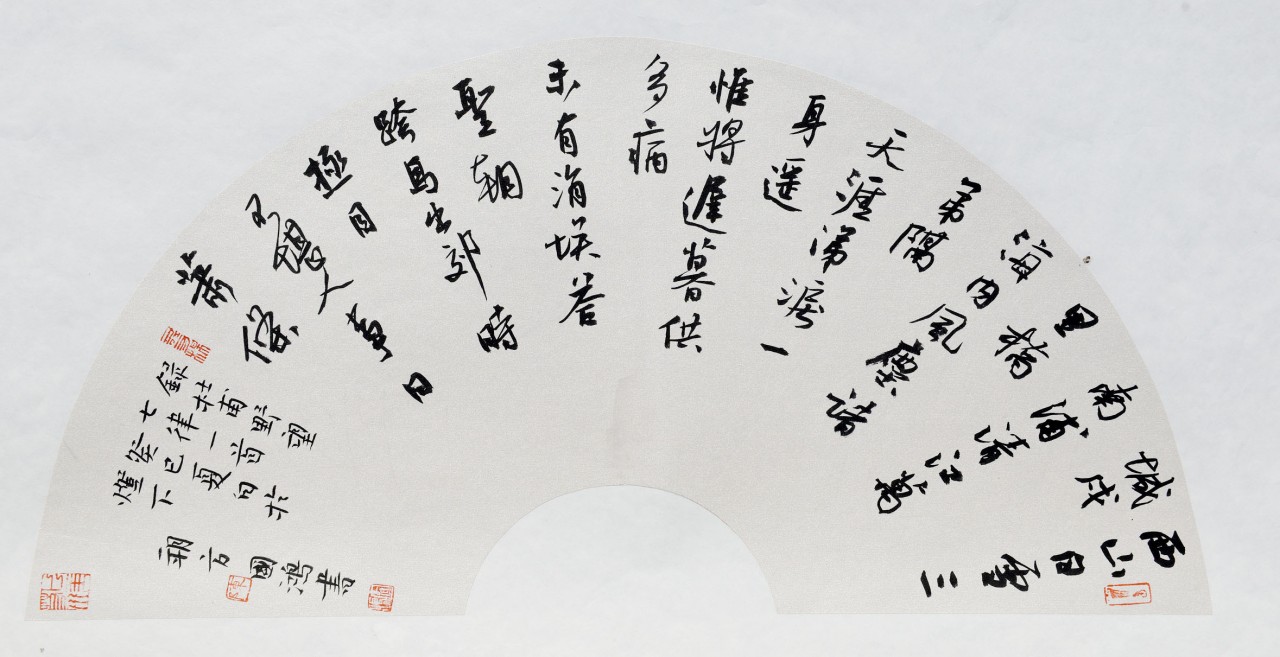 西山白雪三
城戍
南浦清江萬
里橋
海内風塵諸
弟隔
天涯涕淚一
身遥
惟將遲暮供
多病
未有涓埃荅
聖朝
跨馬出郊時
極目
不堪人事日
蕭條
録杜甫野望
七律一首
癸巳夏日於
燈下
朔方國鴻書